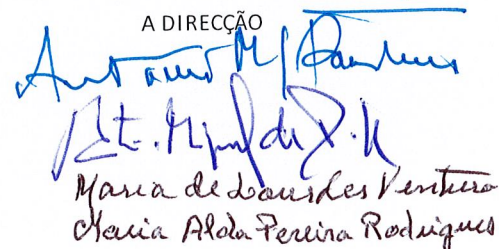 A DIRECÇÃO
António M
Miguel de
Maria de Lourdes Ventura
Maria Alda Pereira Rodrigues